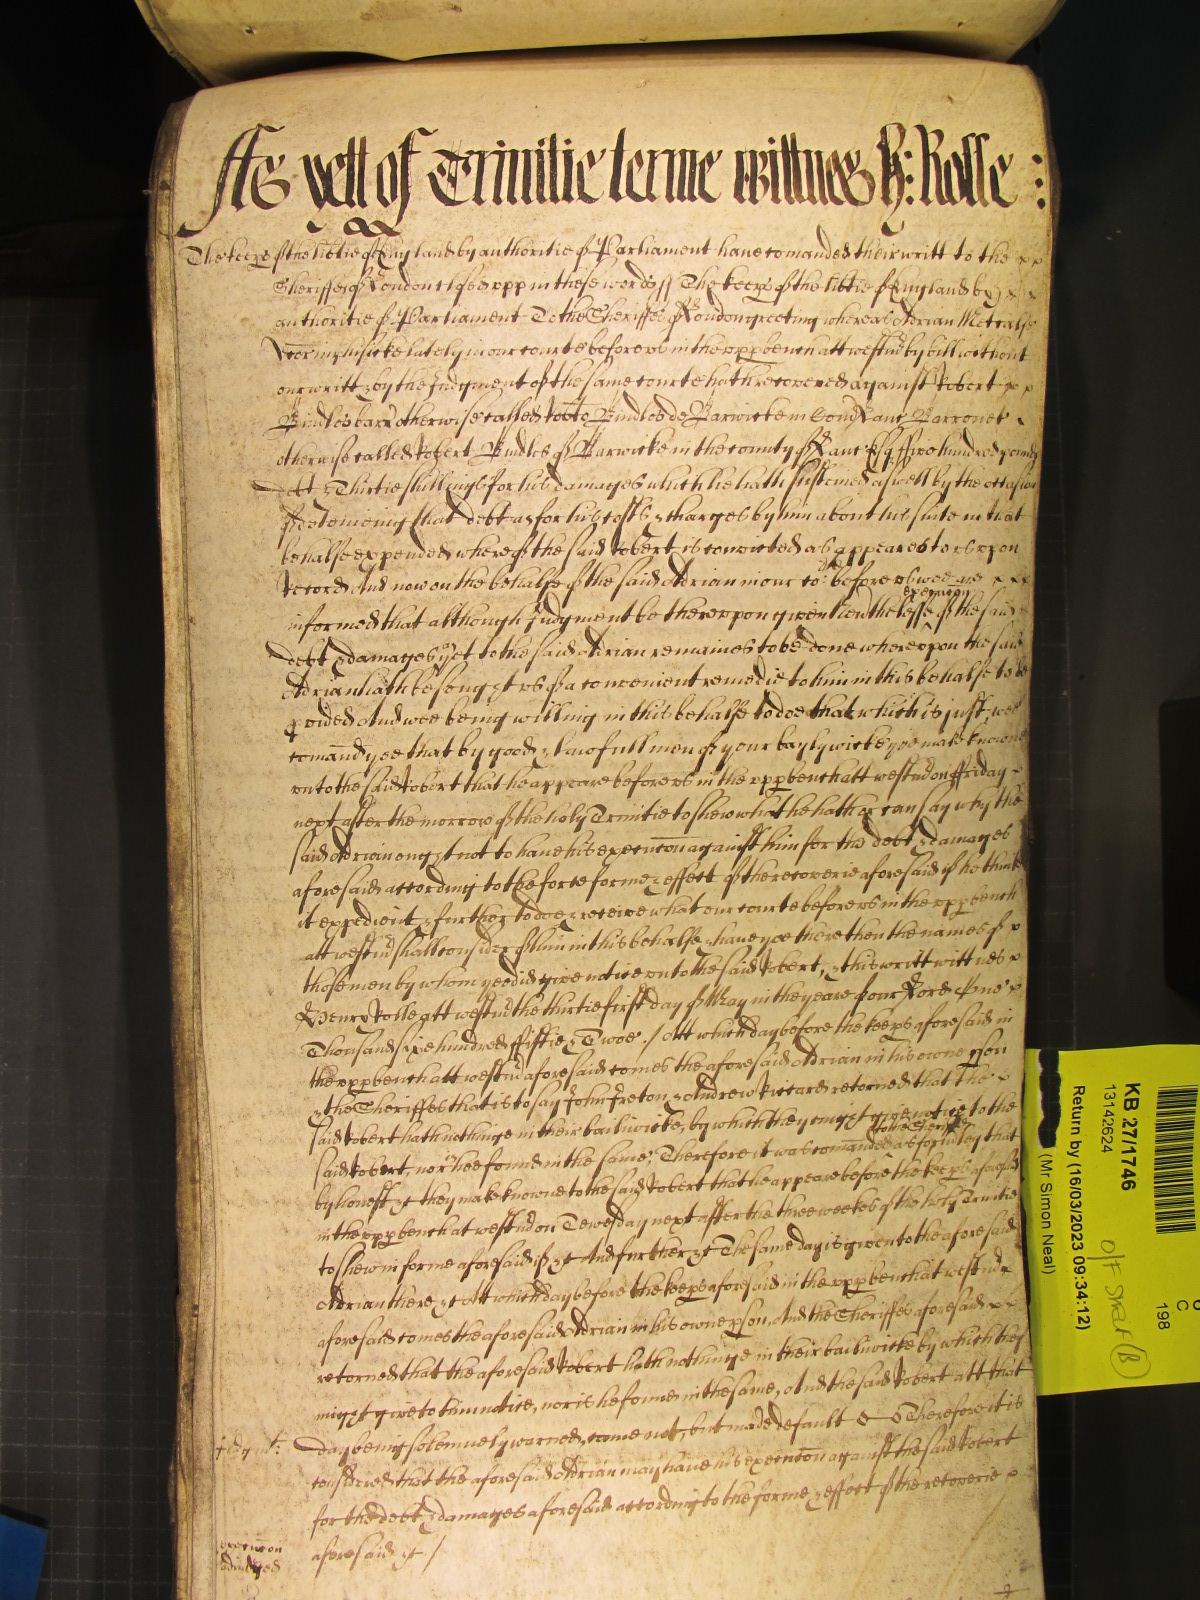 As yett of Trinitie terme wittnes H: Rolle :
The keeps of the libtie of England by authoritie of Parliament have comanded their writt to the
Sheriffes of London closed upp in these words // The keeps of the libtie of England by
authoritie of Parliament To the Sheriffes of London greeting whereas Adrian Metcalfe
lately in our courte before us in the uppbench att westmr by bill without
our writt & by the Judgment of the same courte hath recovered against Robert
Bindlos barrt otherwise called Robte Bindlos de Barwicke in Com Lanc Barronet
otherwise called Robert Bindlos of Barwicke in the county of Lanc Esq two hundred pounds
debt & Thirtie shillings for his damages which he hath susteined aswell by the occasion
of deteineing that debt as for his costs & charges by him about his suite in that
behalfe expended whereof the said Robert is convicted as appeares to us upon
record And now on the behalfe of the said Adrian in our cot before us wee are
informed that although Judgment be thereuppon given execucon the lesse of the said
debt & damages yet to the said Adrian remaines to be done whereuppon the said
Adrian hath besought us of a convenient remedie to him in this behalfe to be
pvided And wee being willing in this behalfe to doe that which is just, wee
comand yee that by good & lawfull men of your baylywicke yee make knowne
unto the said Robert that he appeare before us in the uppbench att westmr on ffriday
next after the morrow of the holy Trinitie to shew what he hath or can say why the
said Adrian ought not to have his execucon against him for the debt & damages
aforesaid according to the force forme & effect of the recoverie aforesaid if he thinke
it expedient & further to doe & receive what our courte before us in the uppbench
att westmr shall consider of him in this behalfe & have yee there then the names of
those men by whom yee did give notice unto the said Robert, & this writt wittnes
Henry Rolle att westmr the thirtie first day of May in the yeare of our Lord One
Thousand sixe hundred ffiftie & Twoe / Att which day before the keeps aforesaid in
the uppbench att westmr aforesaid comes the aforesaid Adrian in his owne pson
& the Sheriffes that is to say John Ireton & Andrew Riccard retorned that the
said Robert hath nothinge in their bailiwicke by which they might give notice to the
said Robert, nor is hee found in the same, Therefore it was comanded to the Sheriffes as formley that
by honest &c they make knowne to the said Robert that he appeare before the keeps aforesaid
in the uppbench at westmr on Tewesday next after the three weekes of the holy Trinitie
to shew in forme aforesaid if &c And further &c The same day is given to the aforesaid
Adrian there &c Att which day before the keeps aforesaid in the uppbench at westmr
aforesaid comes the aforesaid Adrian in his owne pson, And the Sheriffes aforesaid
retorned that the aforesaid Robert hath nothinge in their bailiwicke by which they
might give to him notice, nor is he found in the same, And the said Robert att that
Judgmt: day being solemnely warned, came not, but made default Therefore it is
considered that the aforesaid Adrian may have his execucon against the said Robert
for the debt & damages aforesaid according to the forme & effect of the recoverie
aforesaid &c /
execucon
adiudged
KB 27/1746
13142624
Return by (16/03/2023 09:34:12)
(Mr Simon Neal)
C
198
B